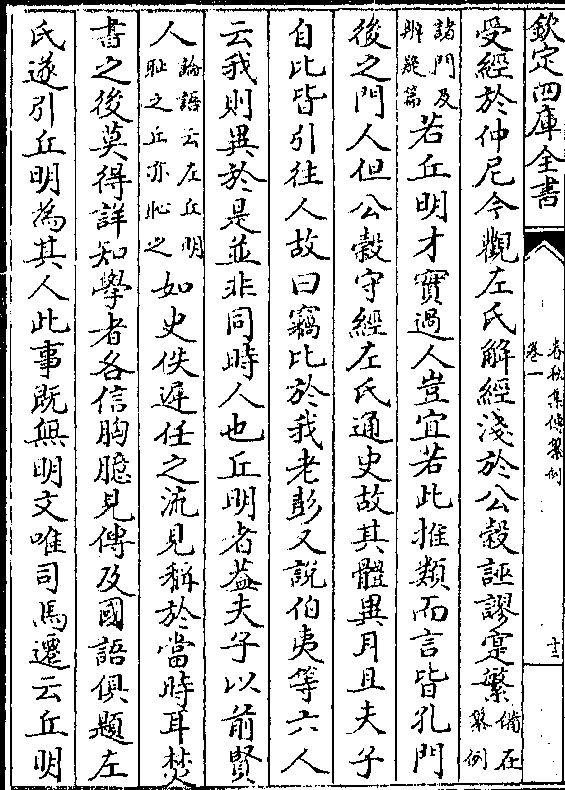 欽定四庫全書
春秋集傳纂例
卷一
十三
受經於仲尼今觀左氏解經淺於公穀誣謬寔繁備在纂例
諸門及辨疑篇若丘明才實過人豈宜若此推類而言皆孔門
後之門人但公穀守經左氏通史故其體異耳且夫子
自比皆引往人故曰竊比於我老彭又說伯夷等六人
云我則異於是並非同時人也丘明者葢夫子以前賢
人論語云左丘明耻之丘亦恥之如史佚遲任之流見稱於當時耳焚
書之後莫得詳知學者各信胸臆見傳及國語俱題左
氏遂引丘明為其人此事既無明文唯司馬遷云丘明